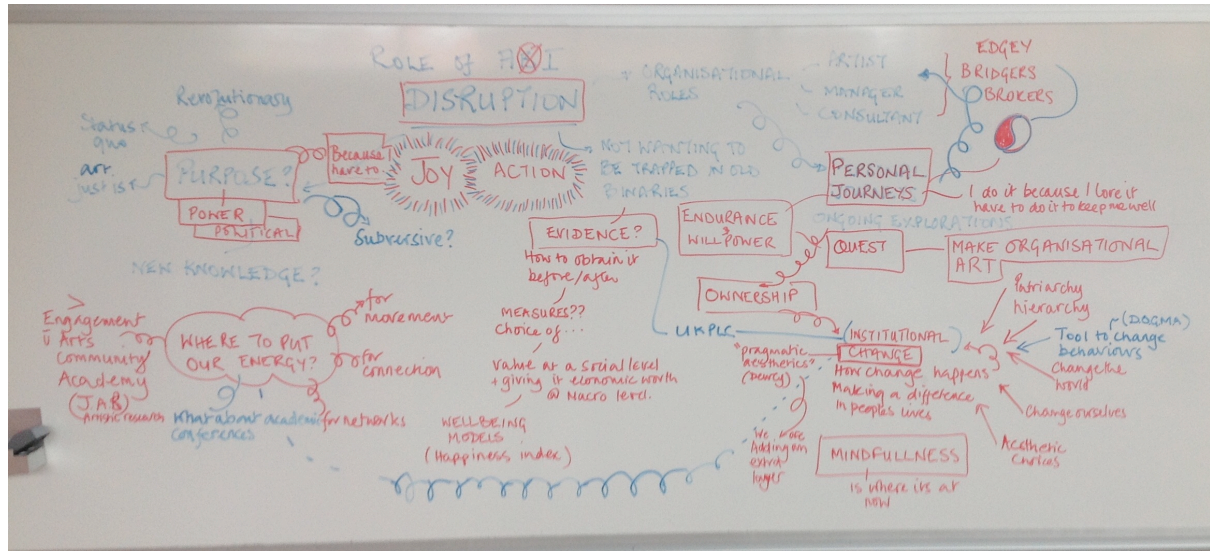 ROLE OF A
I
DISRUPTION
Revolutionary
Status
quo
art
just is
PURPOSE?
POWER
POLITICAL
Because I
have to
JOY
ACTION
Subversive?
NEW KNOWLEDGE?
ORGANISATIONAL
ROLES
ARTIST
MANAGER
CONSULTANT
EDGEY
BRIDGERS
BROKERS
NOT WANTING TO
BE TRAPPED IN OLD
BINARIES
PERSONAL
JOURNEYS
I do it because I love it
have to do it to keep me well
ONGOING EXPLORATIONS
ENDURANCE
&
WILLPOWER
QUEST
MAKE ORGANISATIONAL
ART
OWNERSHIP
EVIDENCE?
How to obtain it
before/after
MEASURES??
Choice of...
Value at a social level
+ giving it economic worth
@ Macro level.
WELLBEING
MODELS
(Happiness index)
UKPLC
(INSTITUTIONAL)
CHANGE
How change happens
Making a difference
in peoples lives
"pragmatic
aesthetics"
(Dewey)
We more
Adding an
extra
layer
MINDFULLNESS
is where its at
now
Patriarchy
hierarchy
(DOGMA)
Tool to change
behaviours
Change the
world
Change ourselves
Aesthetic
choices
Engagement
Arts
Community
Academy
(J.A.R)
Artistic research
WHERE TO PUT
OUR ENERGY?
for
movement
for
connection
for networks
What about academic
conferences